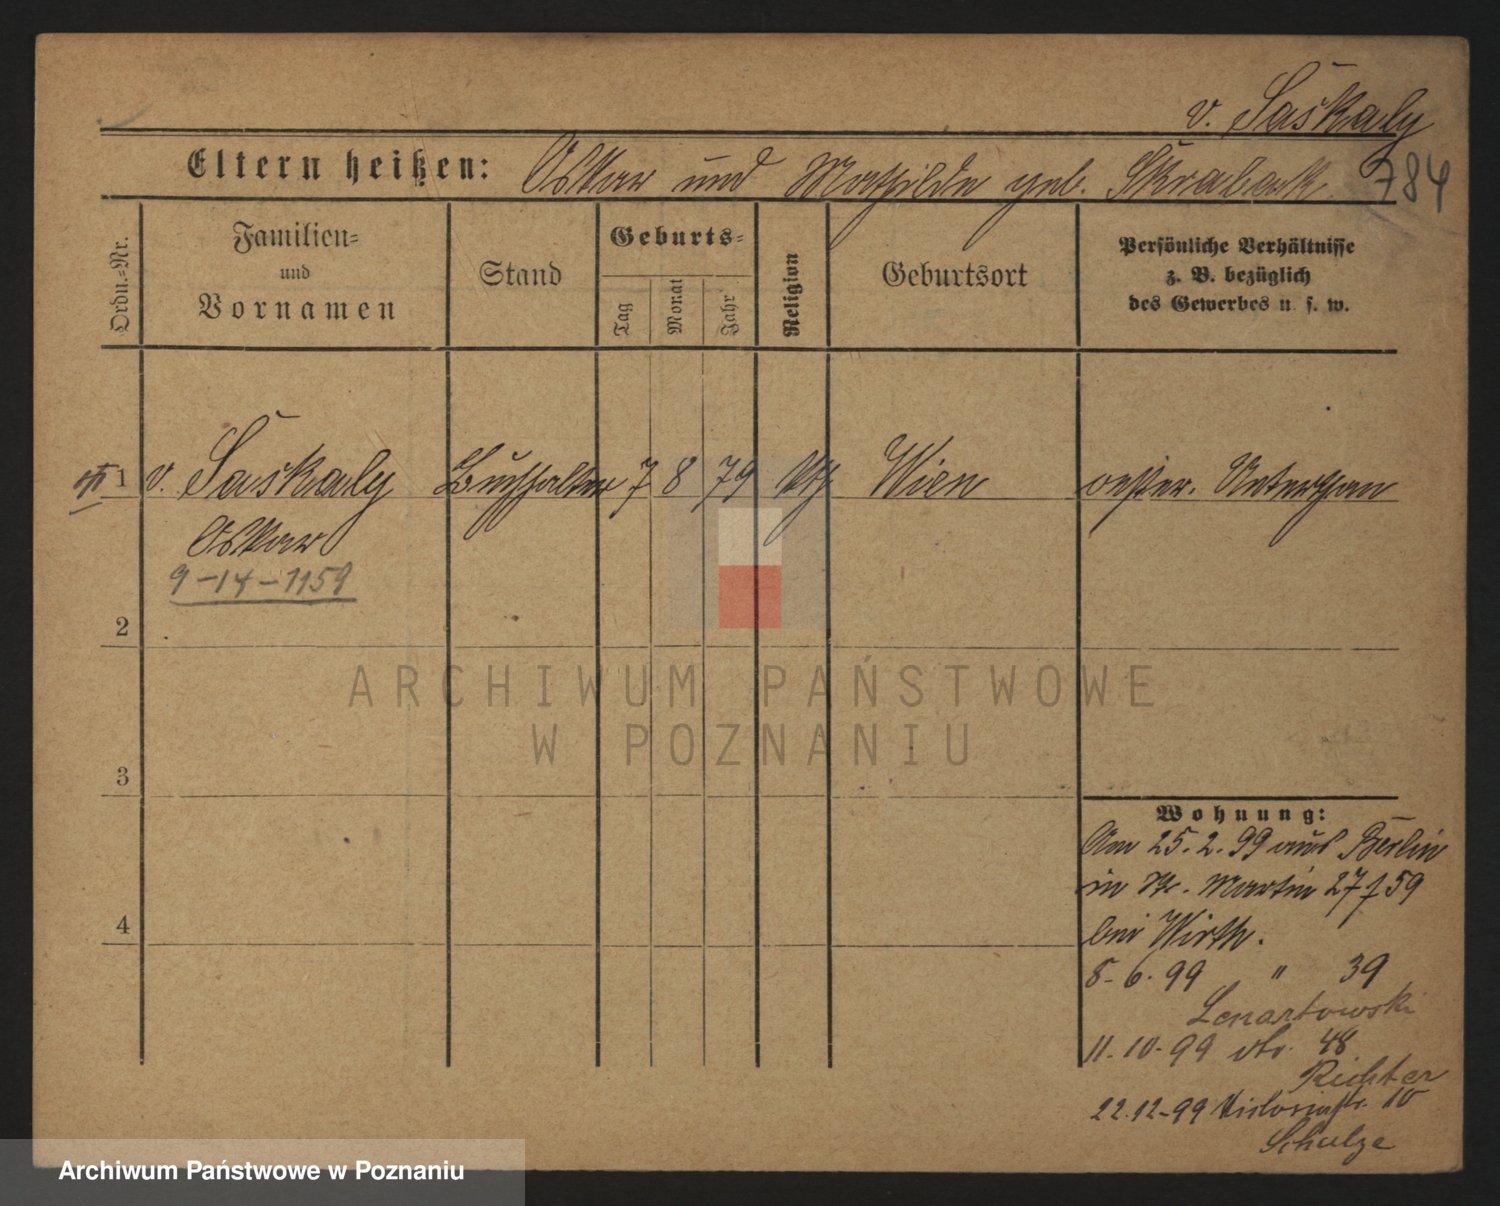 v. Šaskaly
Eltern heißen: Oskar und Mathilde geb. Skrabask. 784
Ordn.-Nr.
Familien-
und
Vornamen
Stand
Geburts-
Tag
Monat
Jahr
Religion
Geburtsort
Persönliche Verhältnisse
z. B. bezüglich
des Gewerbes u. s. w.
1 v. Šaskaly Buchhalter 7 8 79 kth Wien oester. Unterthan
Oskar
9-14-1159
2
3
4
Wohnung:
Am 25.2.99 aus Berlin
in St. Martin 27 f 59
bei Wirth.
8.6.99 " 39
Lenartowski
11.10.99 dto. 48
Richter
22.12.99 Victoriastr. 10
Schulze
ARCHIWUM PAŃSTWOWE
W POZNANIU
Archiwum Państwowe w Poznaniu